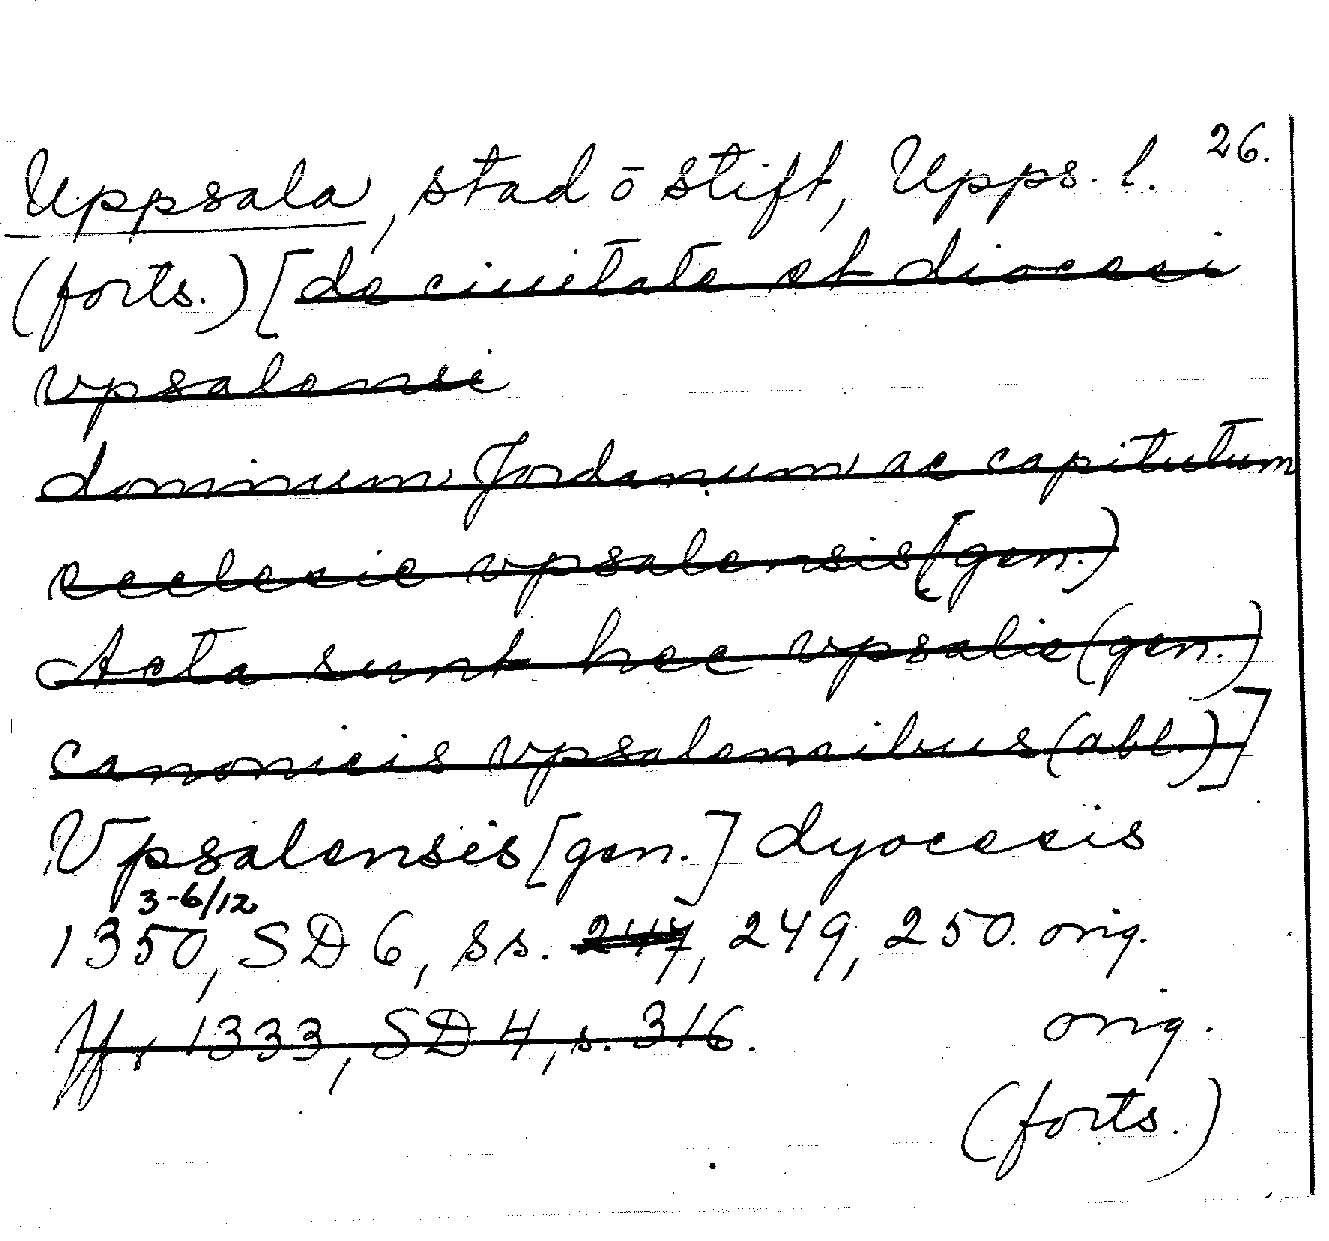 Uppsala, stad ō stift, Upps. l. 26.
(forts.) [de ciuitate et diocesi
vpsalensi
dominum Jordanum ac capitulum
ecclesie vpsalensis (gen.)
Acta sunt hec vpsalie (gen.)
canonicis vpsalensibus (abl.)]
Vpsalensis [gen.] dyocesis
3-6/12
1350, SD 6, ss. 247, 249, 250. orig.
Jfr 1333, SD 4, s. 316. orig.
(forts.)